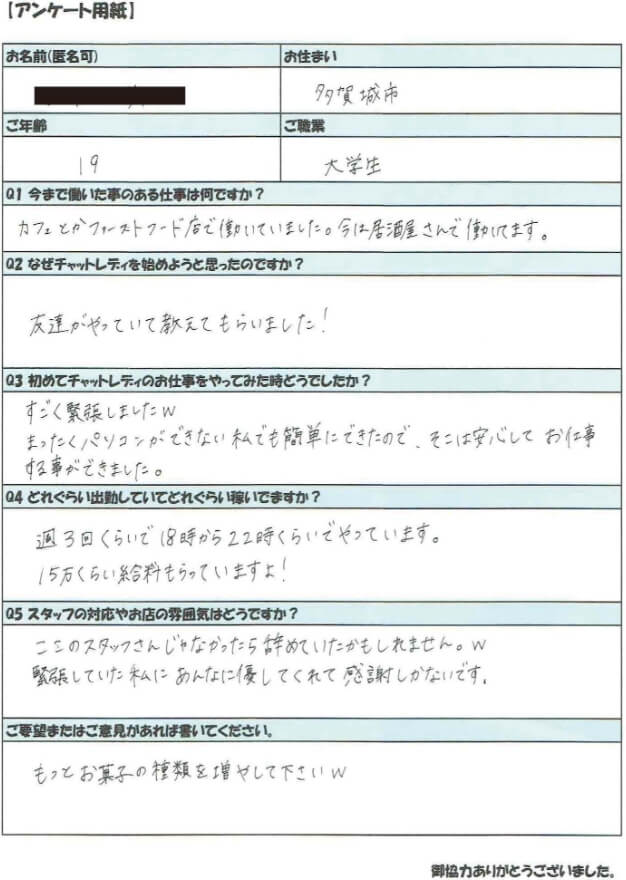 【アンケート用紙】
お名前(匿名可)
お住まい
多賀城市
ご年齢
ご職業
19
大学生
Q1 今まで働いた事のある仕事は何ですか？
カフェとかファーストフード店で働いていました。今は居酒屋さんで働いてます。
Q2 なぜチャットレディを始めようと思ったのですか？
友達がやっていて教えてもらいました！
Q3 初めてチャットレディのお仕事をやってみた時どうでしたか？
すごく緊張しましたw
まったくパソコンができない私でも簡単にできたので、そこは安心してお仕事
する事ができました。
Q4 どれぐらい出勤していてどれぐらい稼いでますか？
週3回くらいで18時から22時くらいでやっています。
15万くらい給料もらっていますよ！
Q5 スタッフの対応やお店の雰囲気はどうですか？
ここのスタッフさんじゃなかったら辞めていたかもしれません。w
緊張していた私にあんなに優してくれて感謝しかないです。
ご要望またはご意見があれば書いてください。
もっとお菓子の種類を増やして下さいw
御協力ありがとうございました。